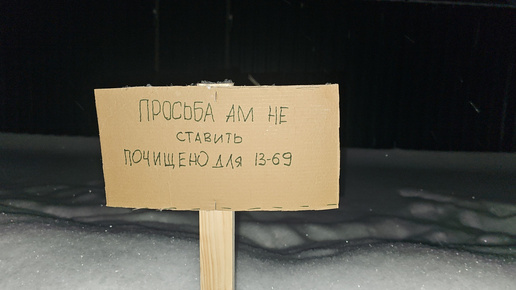 ПРОСЬБА АМ НЕ
СТАВИТЬ
ПОЧИЩЕНО ДЛЯ 13-69